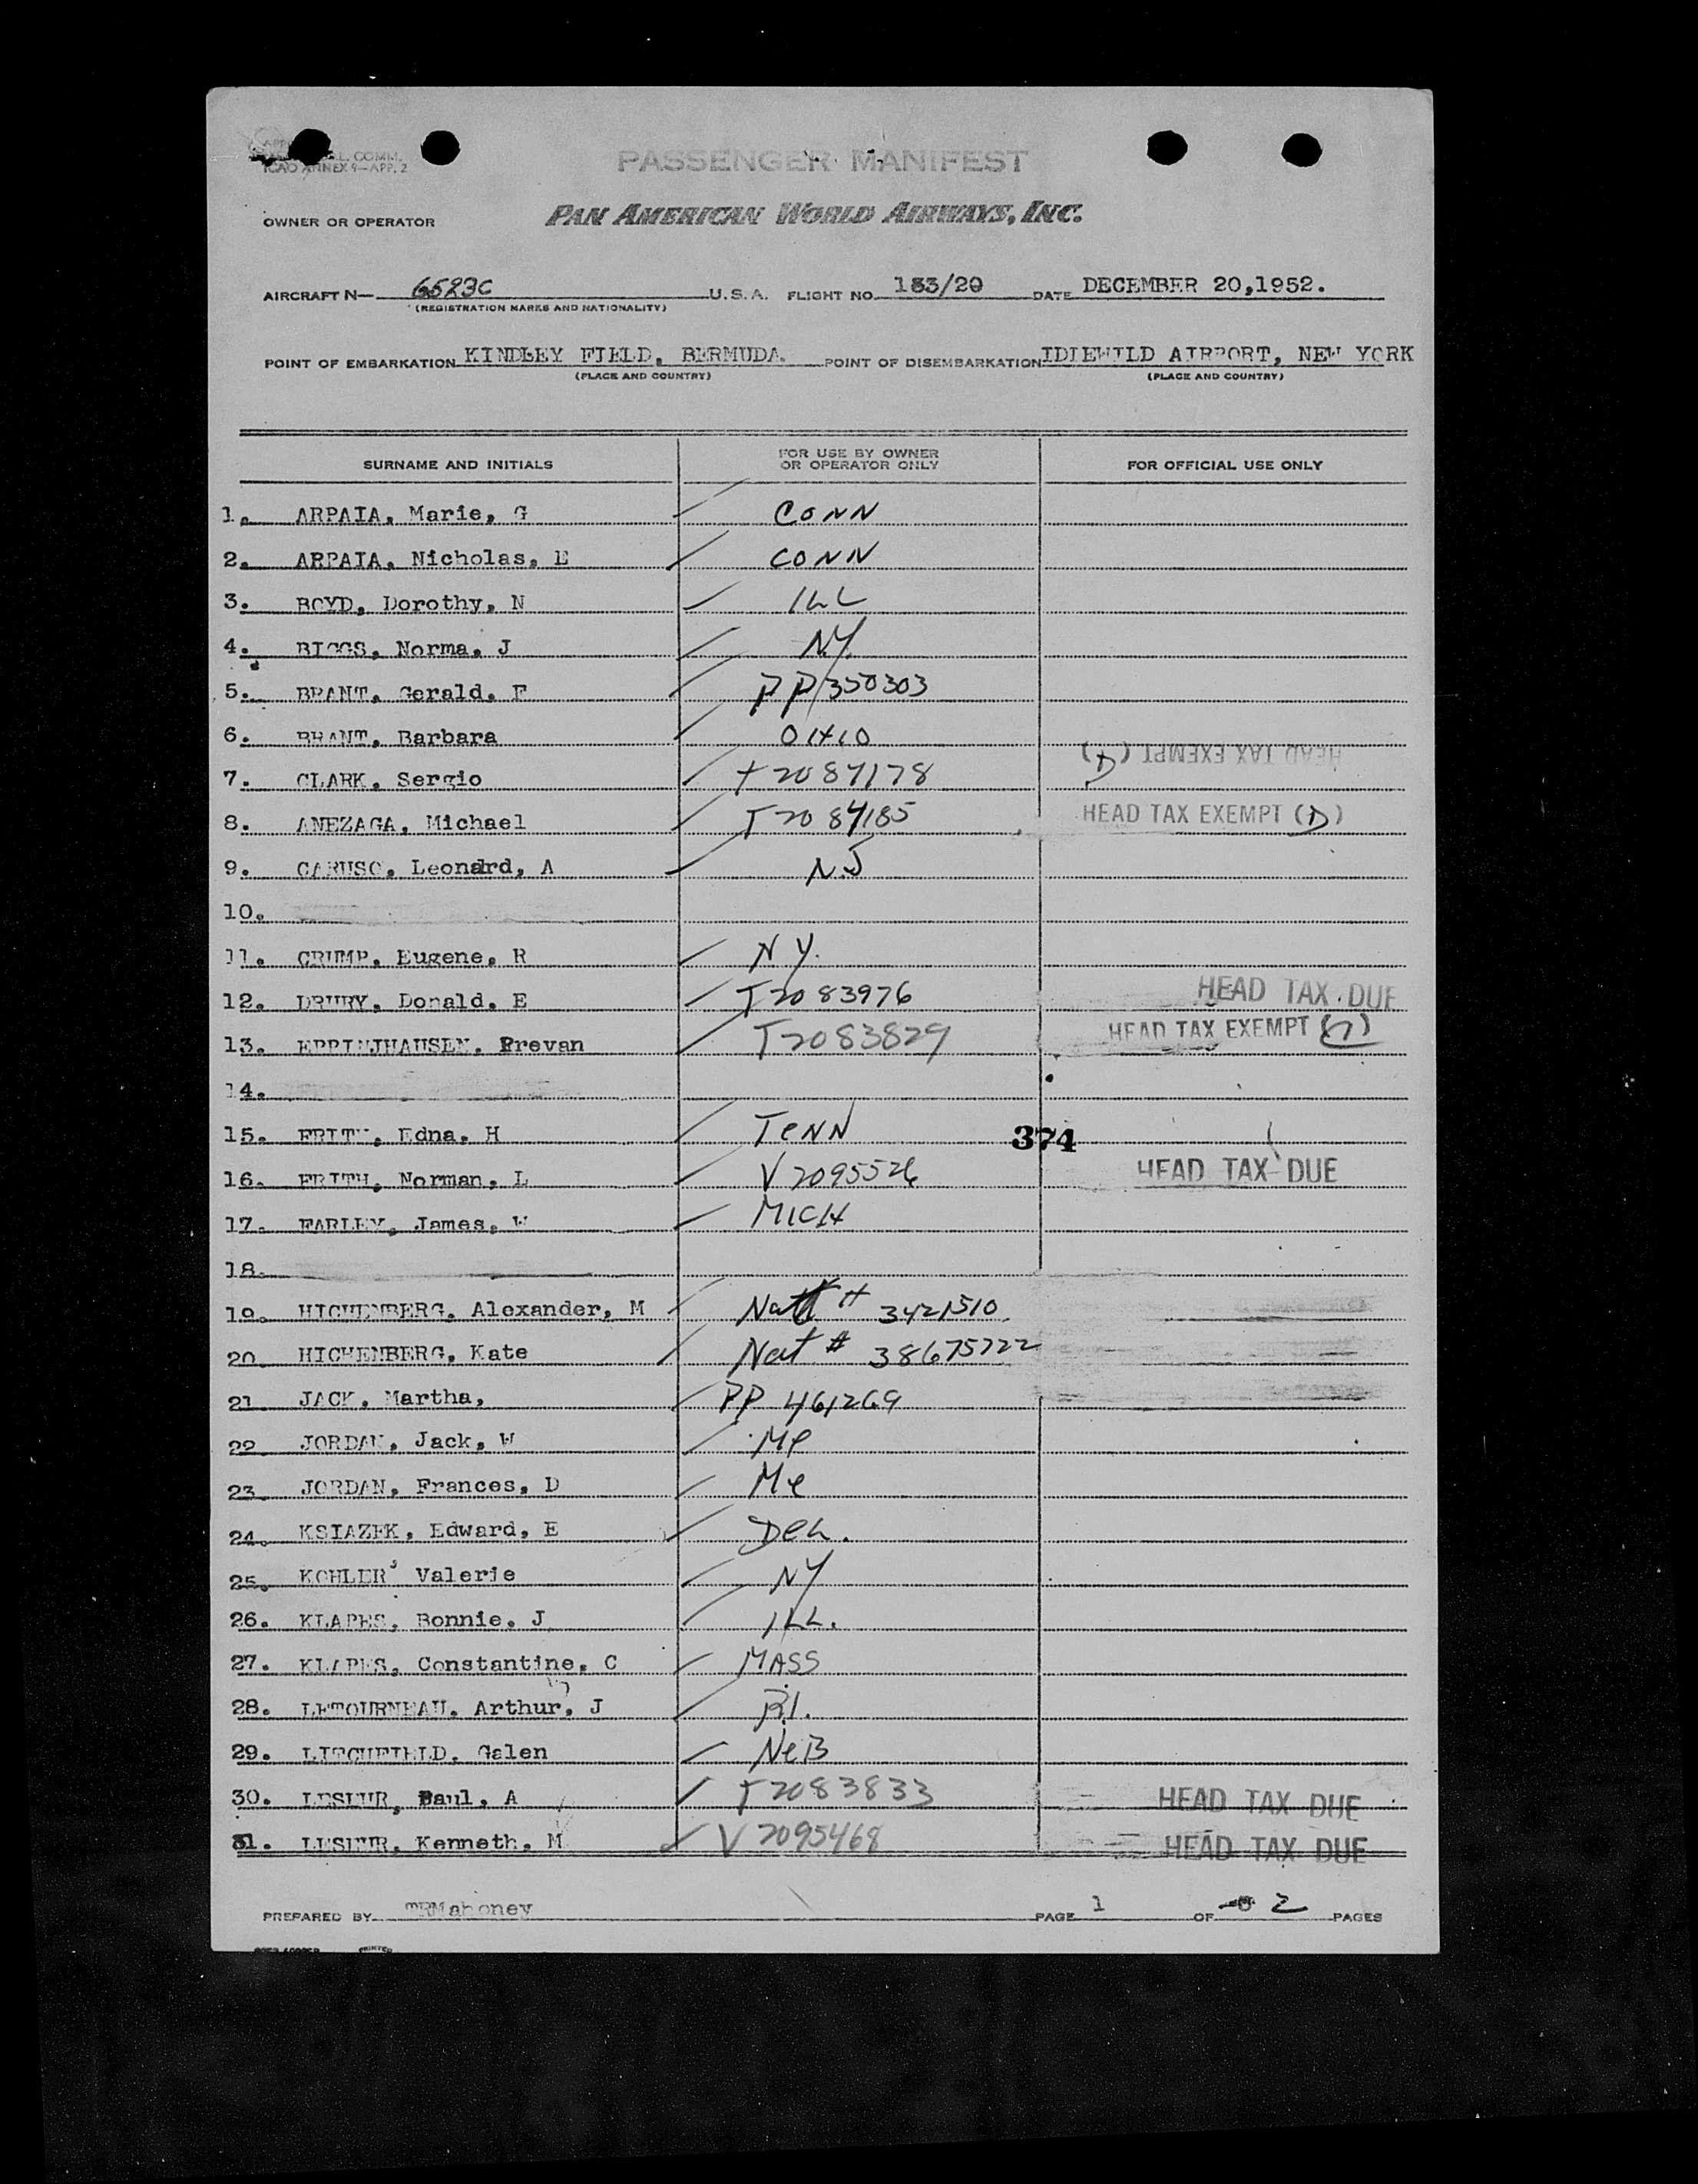 L. COMM.
ICAO ANNEX 9—APP. 2
PASSENGER MANIFEST
OWNER OR OPERATOR PAN AMERICAN WORLD AIRWAYS, INC.
AIRCRAFT N— 6523C U.S.A. FLIGHT NO. 153/20 DATE DECEMBER 20,1952.
(REGISTRATION MARKS AND NATIONALITY)
POINT OF EMBARKATION KINDLEY FIELD, BERMUDA. POINT OF DISEMBARKATION IDLEWILD AIRPORT, NEW YORK
(PLACE AND COUNTRY) (PLACE AND COUNTRY)
SURNAME AND INITIALS FOR USE BY OWNER OR OPERATOR ONLY FOR OFFICIAL USE ONLY
1. ARPAIA, Marie, G CONN
2. ARPAIA, Nicholas, E CONN
3. BOYD, Dorothy, N ILL
4. BIGGS, Norma, J N.Y.
5. BRANT, Gerald, F PP 350303
6. BRANT, Barbara OHIO
7. CLARK, Sergio T2087178 HEAD TAX EXEMPT (D)
8. AMEZAGA, Michael T2087185 HEAD TAX EXEMPT (D)
9. CARUSO, Leonard, A N.J
10.
11. CRUMP, Eugene, R N Y.
12. DRURY, Donald, E T2083976 HEAD TAX DUE
13. EPPINJHAUSEN, Prevan T2083829 HEAD TAX EXEMPT (7)
14.
15. FRITH, Edna, H TENN
374
16. FRITH, Norman, L V 2095526 HEAD TAX DUE
17. FARLEY, James, W MICH
18.
19. HICHENBERG, Alexander, M Nat # 3421510
20. HICHENBERG, Kate Nat # 38675722
21. JACK, Martha, PP 461269
22. JORDAN, Jack, W Me
23. JORDAN, Frances, D Me
24. KSIAZEK, Edward, E DEL.
25. KOHLER, Valerie NY
26. KLAPES, Bonnie, J ILL.
27. KLAPES, Constantine, C MASS
28. LETOURNEAU, Arthur, J R.I.
29. LITCHFIELD, Galen NEB
30. LESEUR, Paul, A T2083833 HEAD TAX DUE
31. LESEUR, Kenneth, M V 2095468 HEAD TAX DUE
PREPARED BY TRMahoney PAGE 1 OF 2 PAGES